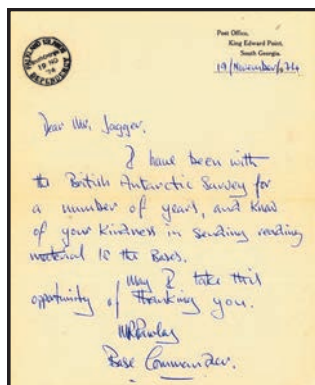 FALKLAND ISLANDS
19 NO
74
DEPENDENCY
Post Office,
King Edward Point,
South Georgia.
19/November/74
Dear Mr. Jagger.
I have been with
the British Antarctic Survey for
a number of years, and know
of your kindness in sending reading
material to the Bases.
May I take this
opportunity of thanking you.
Base Commander.